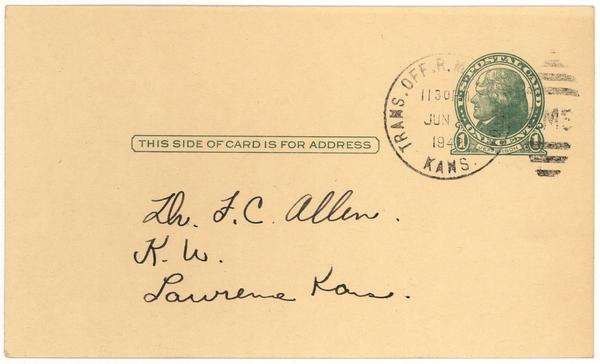 TRANS. OFF. R.
1130
JUN
194
KANS.
U.S. POSTAL CARD
ONE CENT
1 1
THIS SIDE OF CARD IS FOR ADDRESS
Dr. F. C. Allen.
K. U.
Lawrence Kans.